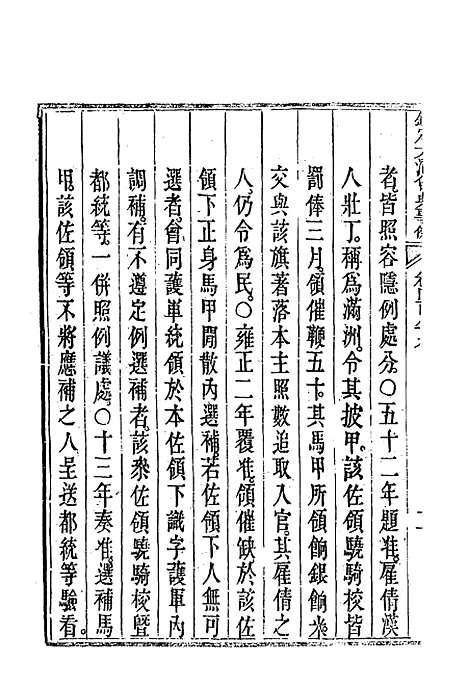 者。皆照容隱例處分。〇五十二年題准。雇倩漢
人壯丁。稱爲滿洲。令其披甲。該佐領驍騎校皆
罰俸三月。領催鞭五十。其馬甲所領餉銀餉米。
交與該旗著落本主照數追取入官。其雇倩之
人。仍令爲民。〇雍正二年覆准。領催缺於該佐
領下正身馬甲閒散內選補。若佐領下人無可
選者。會同護軍統領於本佐領下識字護軍內
調補。有不遵定例選補者。該叅佐領驍騎校曁
都統等。一併照例議處。〇十三年奏准。選補馬
甲。該佐領等不將應補之人呈送都統等驗看。